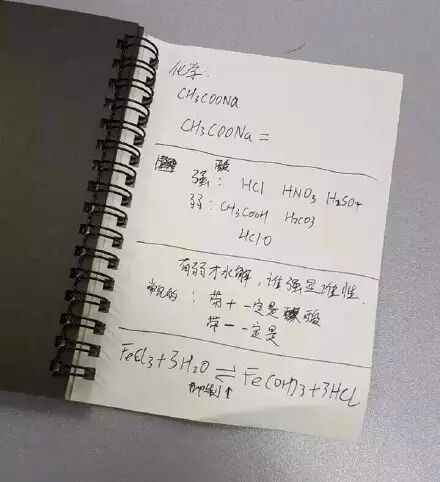 化学:
CH3COONa
CH3COONa =
酸
强: HCl HNO3 H2SO4
弱: CH3COOH H2CO3
HClO
有弱才水解,谁强显谁性.
常见的: 带+一定是酸
带-一定是
FeCl3+3H2O⇌Fe(OH)3+3HCl
抑制↑